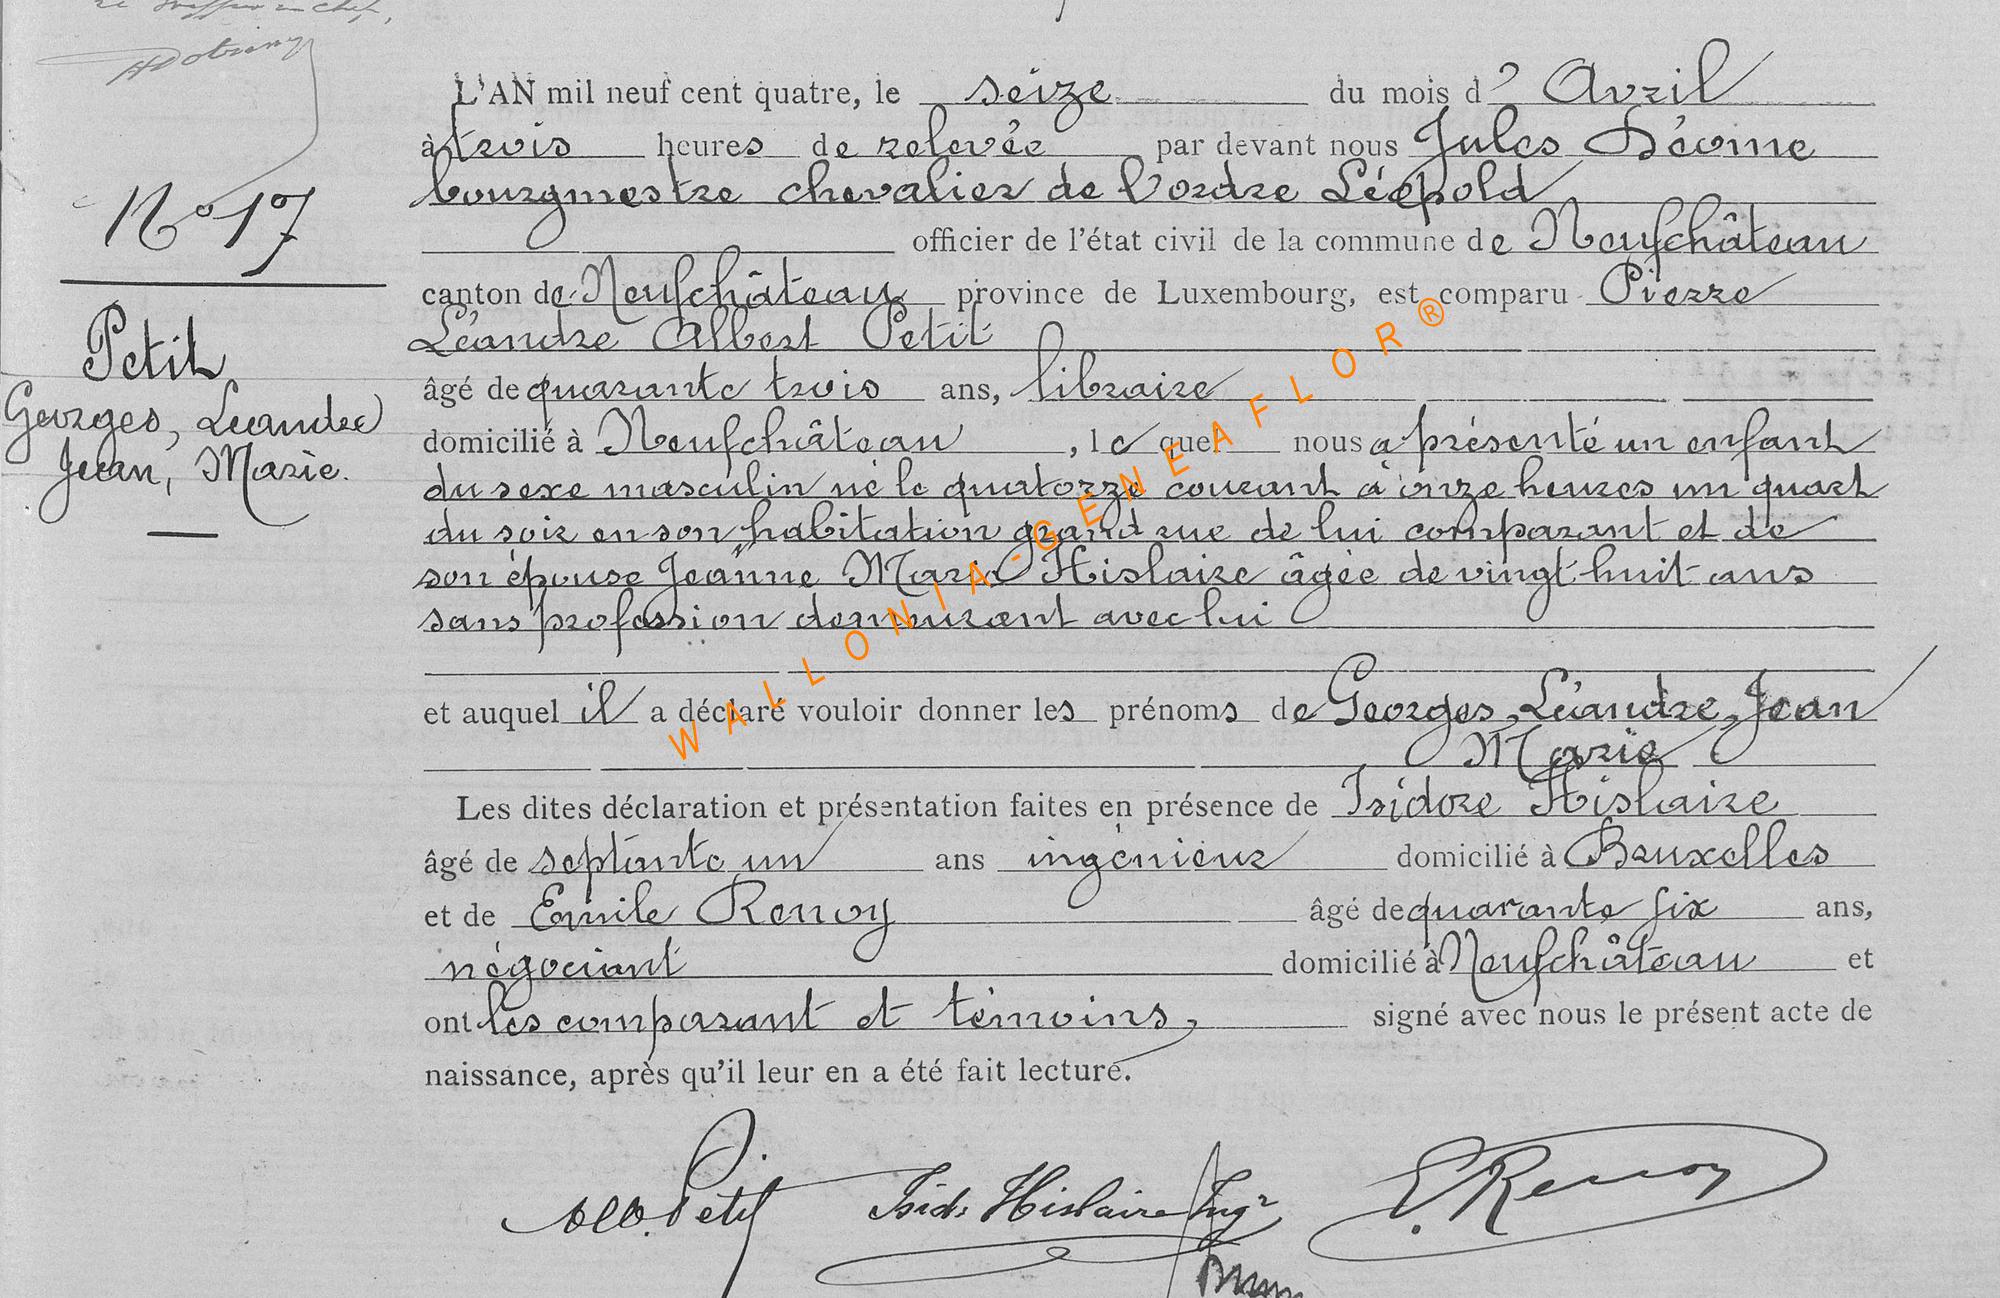 le Greffier en chef,
N° 17
Petit
Georges, Leandre
Jean, Marie.
L'AN mil neuf cent quatre, le seize du mois d' Avril
à trois heures de relevée par devant nous Jules
bourgmestre chevalier de l'ordre Léopold
officier de l'état civil de la commune de Neufchâteau
canton de Neufchâteau province de Luxembourg, est comparu Pierre
Léandre Albert Petit
âgé de quarante trois ans, libraire
domicilié à Neufchâteau, lequel nous a présenté un enfant
du sexe masculin né le quatorze courant à onze heures un quart
du soir en son habitation grand rue de lui comparant et de
son épouse Jeanne Marie Hislaire âgée de vingt huit ans
sans profession demeurant avec lui
et auquel il a déclaré vouloir donner les prénoms de Georges, Léandre, Jean
Marie
Les dites déclaration et présentation faites en présence de Isidore Hislaire
âgé de septante un ans ingénieur domicilié à Bruxelles
et de Emile Renoy âgé de quarante six ans,
négociant domicilié à Neufchâteau et
ont les comparant et témoins, signé avec nous le présent acte de
naissance, après qu'il leur en a été fait lecture.
Petit Isid. Hislaire Ingr E. Renoy
WALLONIA-GENEAFLOR®